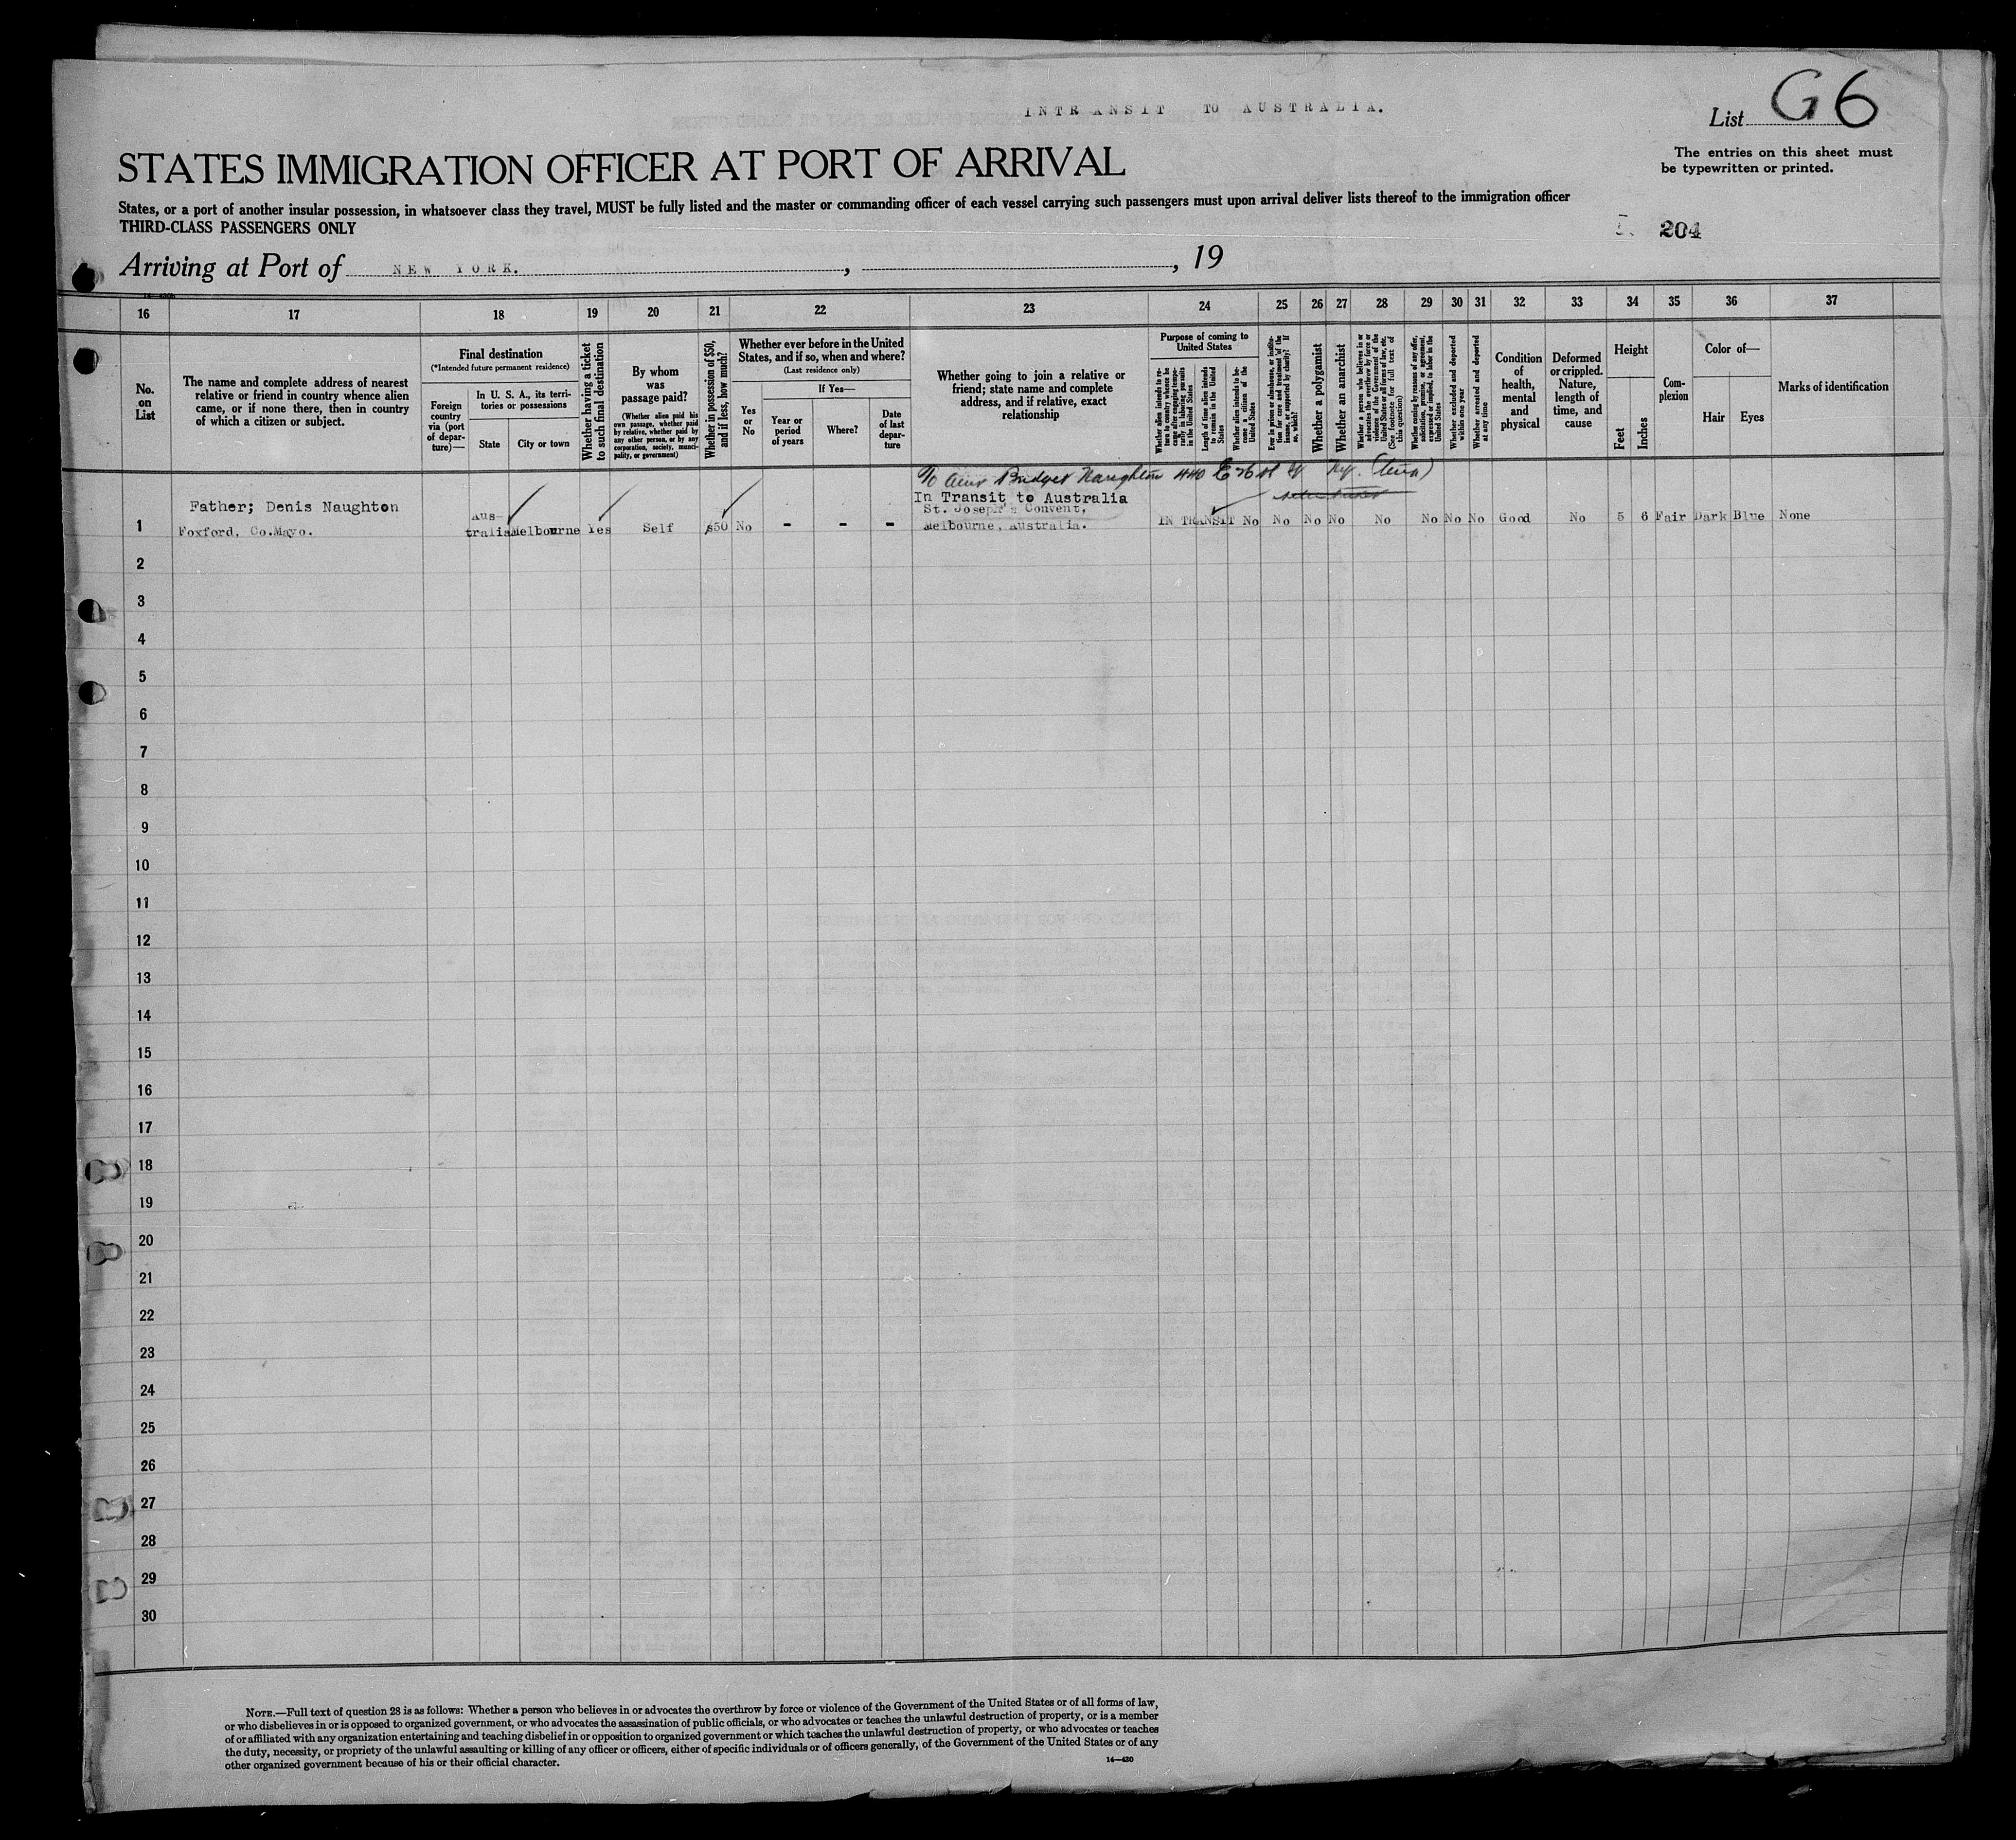 INTRANSIT TO AUSTRALIA.
List G6
The entries on this sheet must
be typewritten or printed.
STATES IMMIGRATION OFFICER AT PORT OF ARRIVAL
States, or a port of another insular possession, in whatsoever class they travel, MUST be fully listed and the master or commanding officer of each vessel carrying such passengers must upon arrival deliver lists thereof to the immigration officer
THIRD-CLASS PASSENGERS ONLY
204
Arriving at Port of NEW YORK. , , 19
16 17 18 19 20 21 22 23 24 25 26 27 28 29 30 31 32 33 34 35 36 37
No.
on
List
The name and complete address of nearest
relative or friend in country whence alien
came, or if none there, then in country
of which a citizen or subject.
Final destination
(*Intended future permanent residence)
Foreign
country
via (port
of depar-
ture)—
In U. S. A., its terri-
tories or possessions
State
City or town
Whether having a ticket
to such final destination
By whom
was
passage paid?
(Whether alien paid his
own passage, whether paid
by relative, whether paid by
any other person, or by any
corporation, society, munici-
pality, or government)
Whether in possession of $50,
and if less, how much?
Whether ever before in the United
States, and if so, when and where?
(Last residence only)
Yes
or
No
If Yes—
Year or
period
of years
Where?
Date
of last
depar-
ture
Whether going to join a relative or
friend; state name and complete
address, and if relative, exact
relationship
Purpose of coming to
United States
Whether alien intends to re-
turn to country whence he
came after engaging tempo-
rarily in laboring pursuits
in the United States
Length of time alien intends
to remain in the United
States
Whether alien intends to be-
come a citizen of the
United States
Ever in prison or almshouse, or institu-
tion for care and treatment of the
insane, or supported by charity? If
so, which?
Whether a polygamist
Whether an anarchist
Whether a person who believes in or
advocates the overthrow by force or
violence of the Government of the
United States or all forms of law, etc.
(See footnote for full text of
this question)
Whether coming by reason of any offer,
solicitation, promise, or agreement,
expressed or implied, to labor in the
United States
Whether excluded and deported
within one year
Whether arrested and deported
at any time
Condition
of
health,
mental
and
physical
Deformed
or crippled.
Nature,
length of
time, and
cause
Height
Feet
Inches
Com-
plexion
Color of—
Hair
Eyes
Marks of identification
c/o Bridget Naughton 440 E
In Transit to Australia
Father; Denis Naughton
St. Joseph's Convent,
Aus-
1 Foxford, Co.Mayo. tralia Melbourne Yes Self $50 No - - - Melbourne, Australia. IN TRANSIT No No No No No No No No Good No 5 6 Fair Dark Blue None
2
3
4
5
6
7
8
9
10
11
12
13
14
15
16
17
18
19
20
21
22
23
24
25
26
27
28
29
30
NOTE.—Full text of question 28 is as follows: Whether a person who believes in or advocates the overthrow by force or violence of the Government of the United States or of all forms of law,
or who disbelieves in or is opposed to organized government, or who advocates the assassination of public officials, or who advocates or teaches the unlawful destruction of property, or is a member
of or affiliated with any organization entertaining and teaching disbelief in or opposition to organized government or which teaches the unlawful destruction of property, or who advocates or teaches
the duty, necessity, or propriety of the unlawful assaulting or killing of any officer or officers, either of specific individuals or of officers generally, of the Government of the United States or of any
other organized government because of his or their official character.
14—430